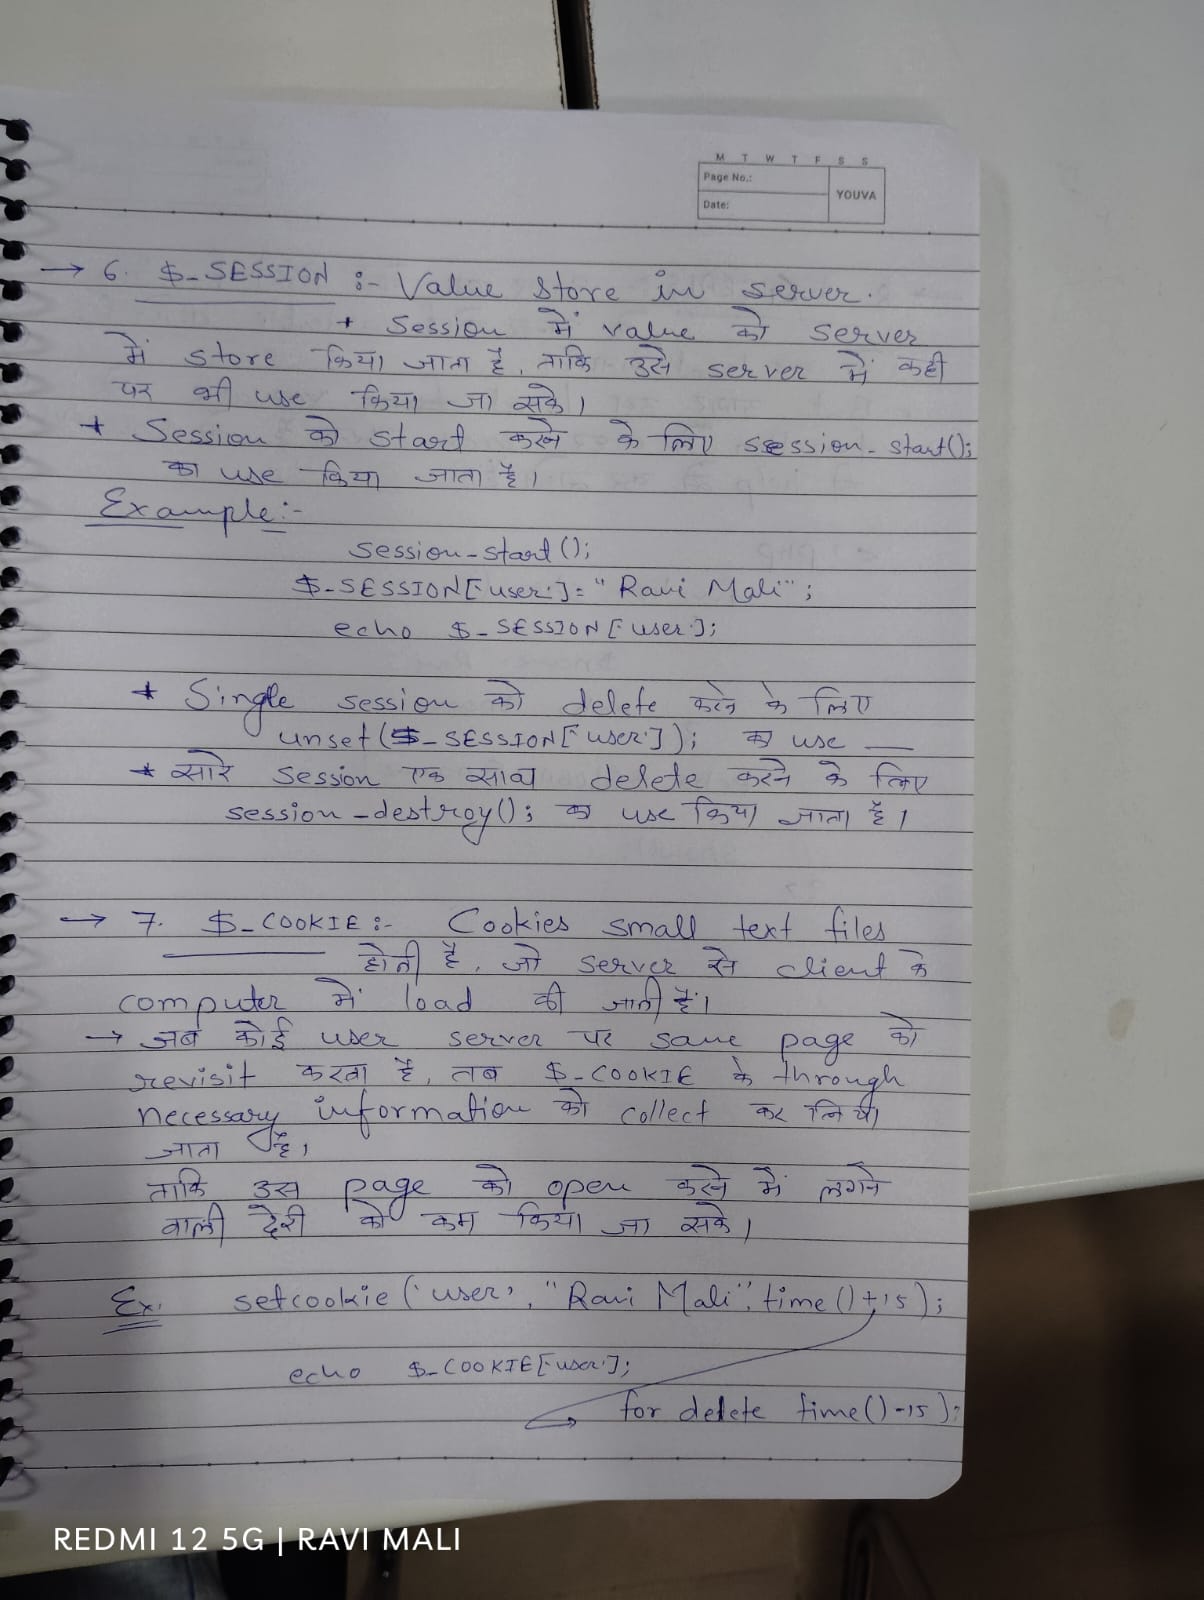 M T W T F S S
Page No.:
YOUVA
Date:
→ 6. $_SESSION :- Value store in server.
* Session में value को server
में store किया जाता है, ताकि उसे server में कही
पर भी use किया जा सके।
* Session को start करने के लिए session_start();
का use किया जाता है।
Example:-
session_start();
$_SESSION['user']= "Ravi Mali";
echo $_SESSION['user'];
* Single session को delete करने के लिए
unset($_SESSION['user']); का use —
* सारे session एक साथ delete करने के लिए
session_destroy(); का use किया जाता है।
→ 7. $_COOKIE:- Cookies small text files
होती है, जो server से client के
computer में load की जाती हैं।
→ जब कोई user server पर same page को
revisit करता है, तब $_COOKIE के through
necessary information को collect कर लिया
जाता है।
ताकि उस page को open करने में लगने
वाली देरी को कम किया जा सके।
Ex. setcookie('user', "Ravi Mali", time()+15);
echo $_COOKIE['user'];
→ for delete time()-15);
REDMI 12 5G | RAVI MALI